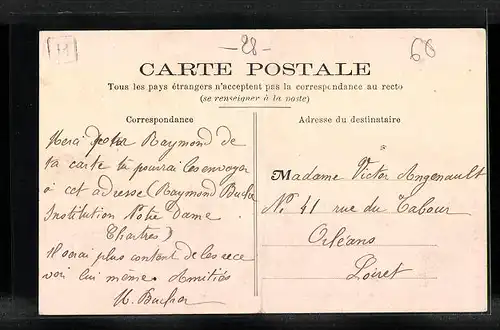 H
-28-
68
CARTE POSTALE
Tous les pays étrangers n'acceptent pas la correspondance au recto
(se renseigner à la poste)
Correspondance
Merci Raymond de
ta carte tu pourrai les envoyer
à cet adresse (Raymond Bucher
Institution Notre Dame
Chartres)
Il serai plus content de les rece
voir lui même. Amitiés
Bucher
Adresse du destinataire
Madame Victor Angenault
No 41 rue du Tabour
Orléans
Loiret